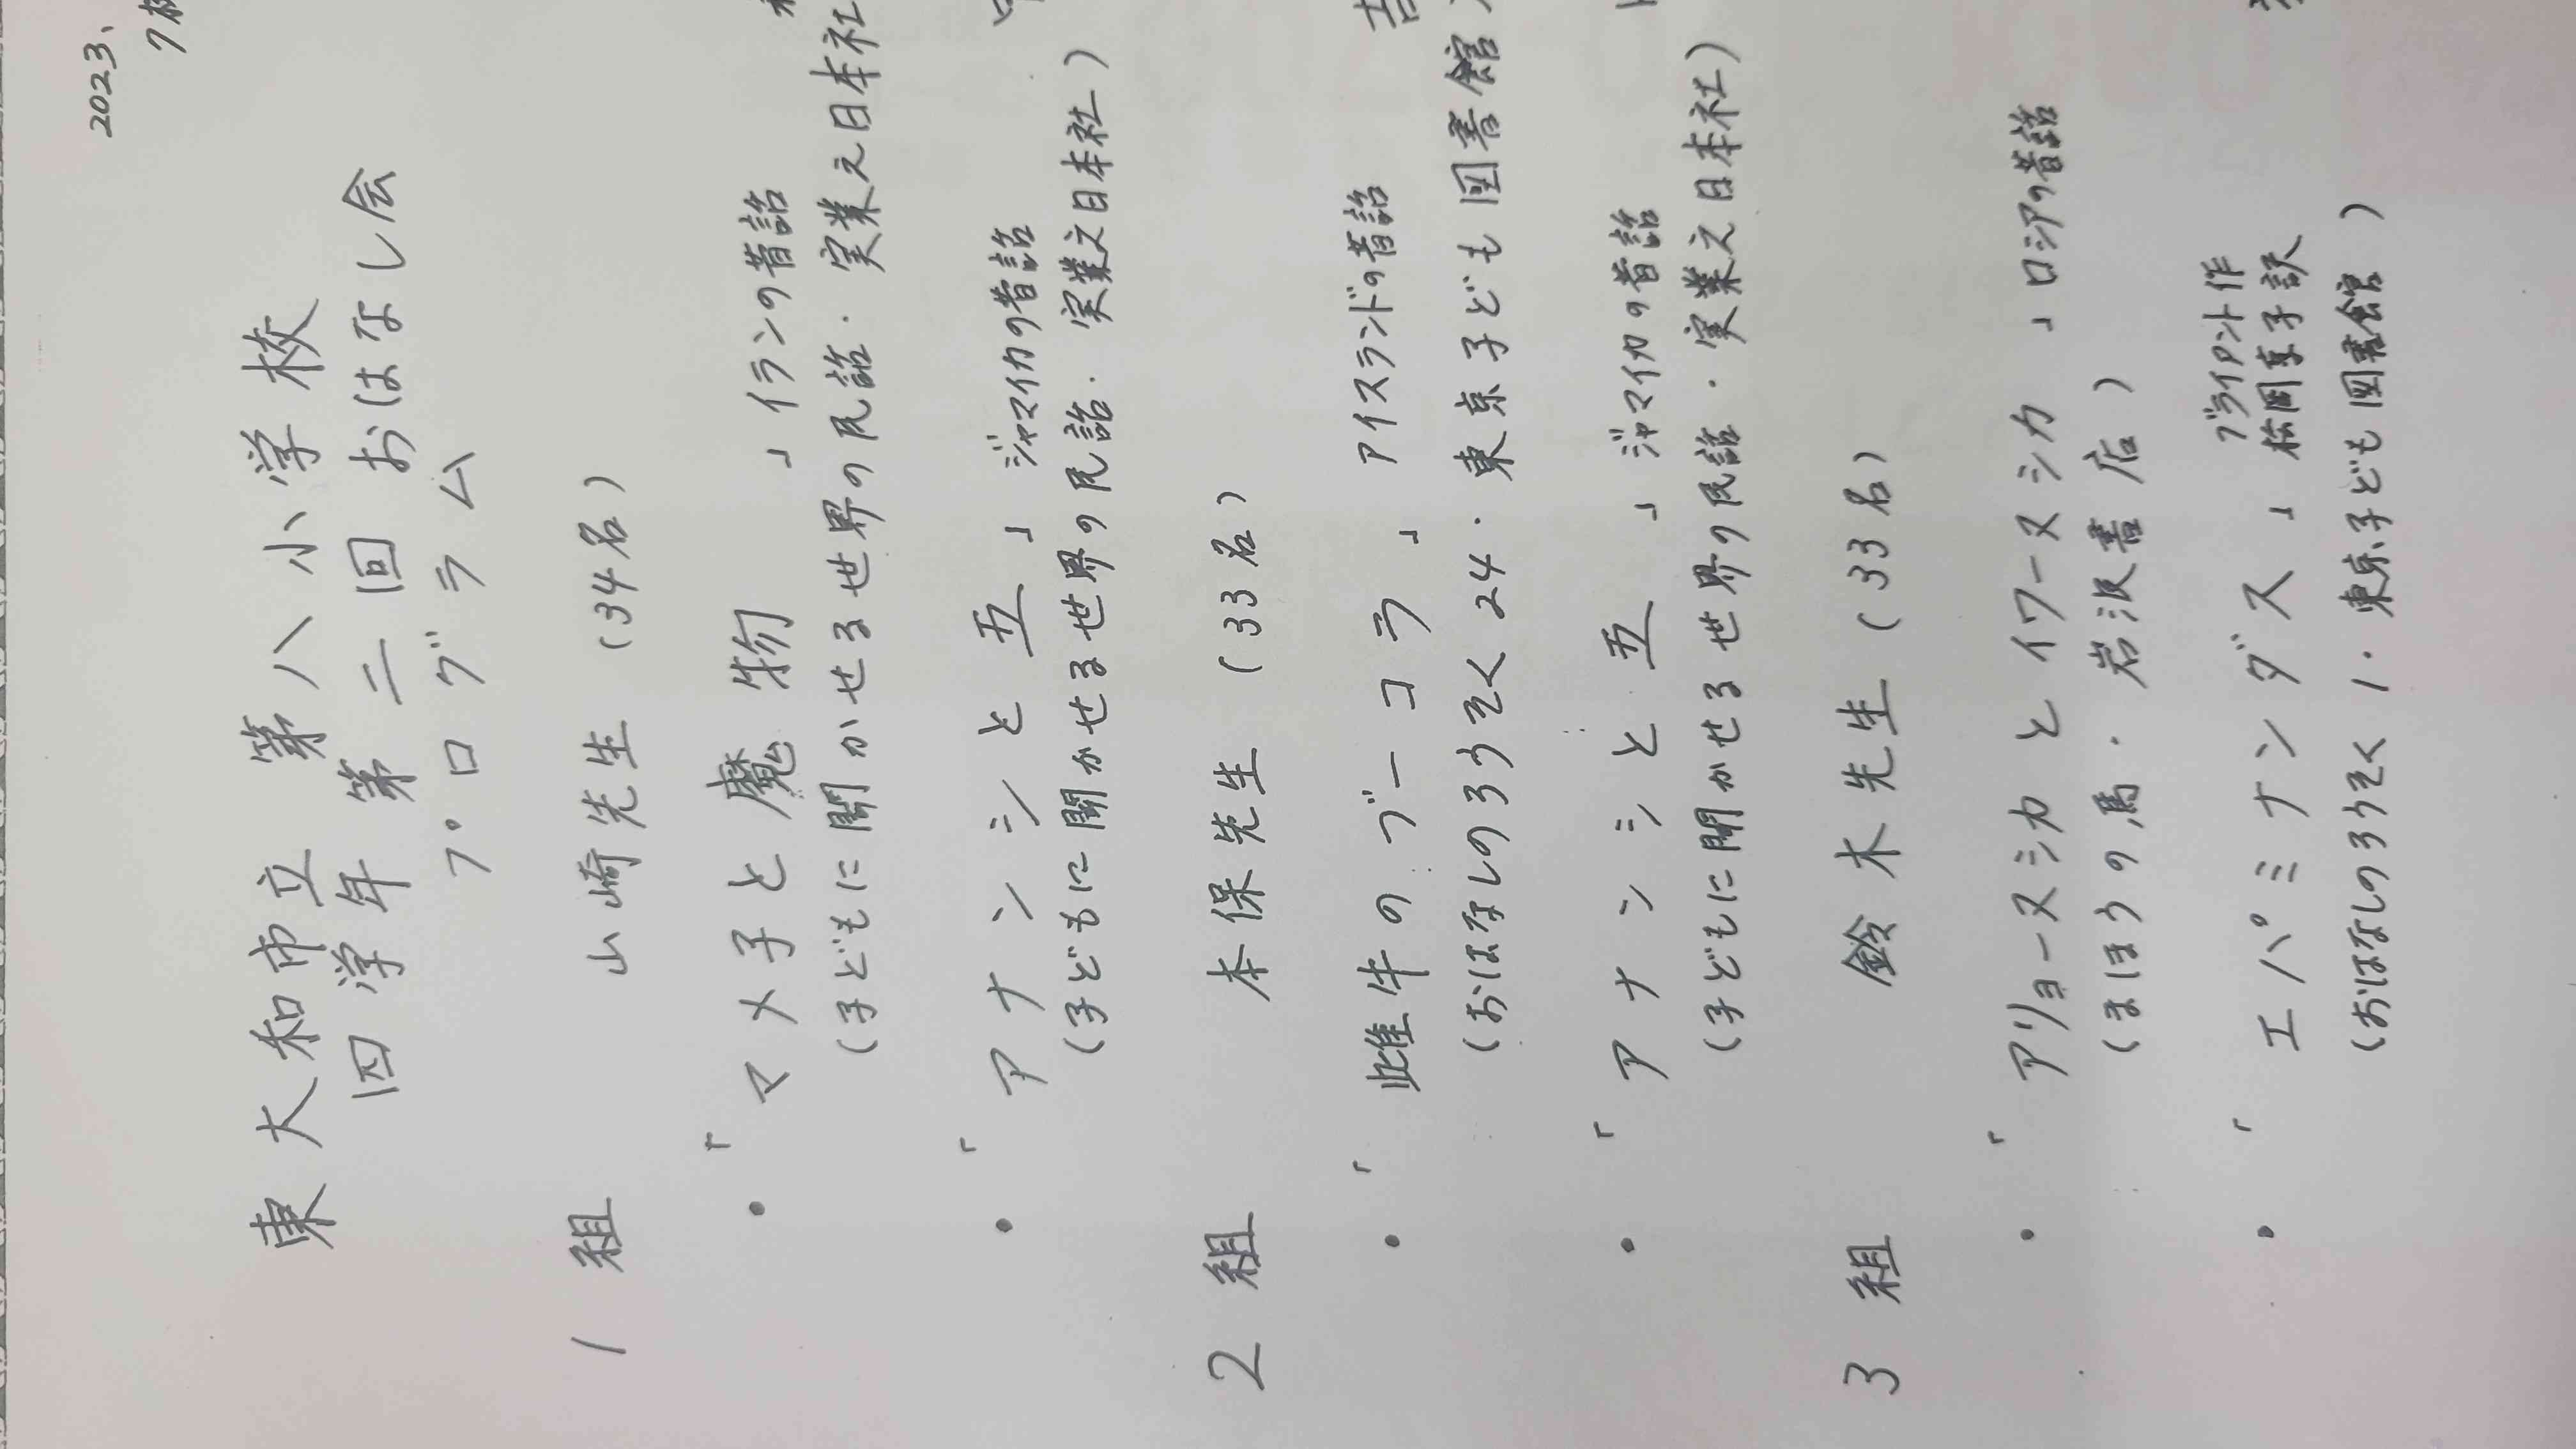 2023、
東大和市立 第八小学校
四学年 第二回 おはなし会
プログラム
1組 山崎先生 (34名)
・「マメ子と魔物」イランの昔話
(子どもに聞かせる世界の民話・実業之日本社
・「アナンシと五」ジャマイカの昔話
(子どもに聞かせる世界の民話・実業之日本社)
2組 本保先生 (33名)
・「雌牛のブーコラ」アイスランドの昔話
(おはなしのろうそく24・東京子ども図書館
・「アナンシと五」ジャマイカの昔話
(子どもに聞かせる世界の民話・実業之日本社)
3組 鈴木先生 (33名)
・「アリョーヌシカとイワーヌシカ」ロシアの昔話
(まほうの馬・岩波書店)
・「エパミナンダス」ブライアント作
松岡享子訳
(おはなしのろうそく1・東京子ども図書館)